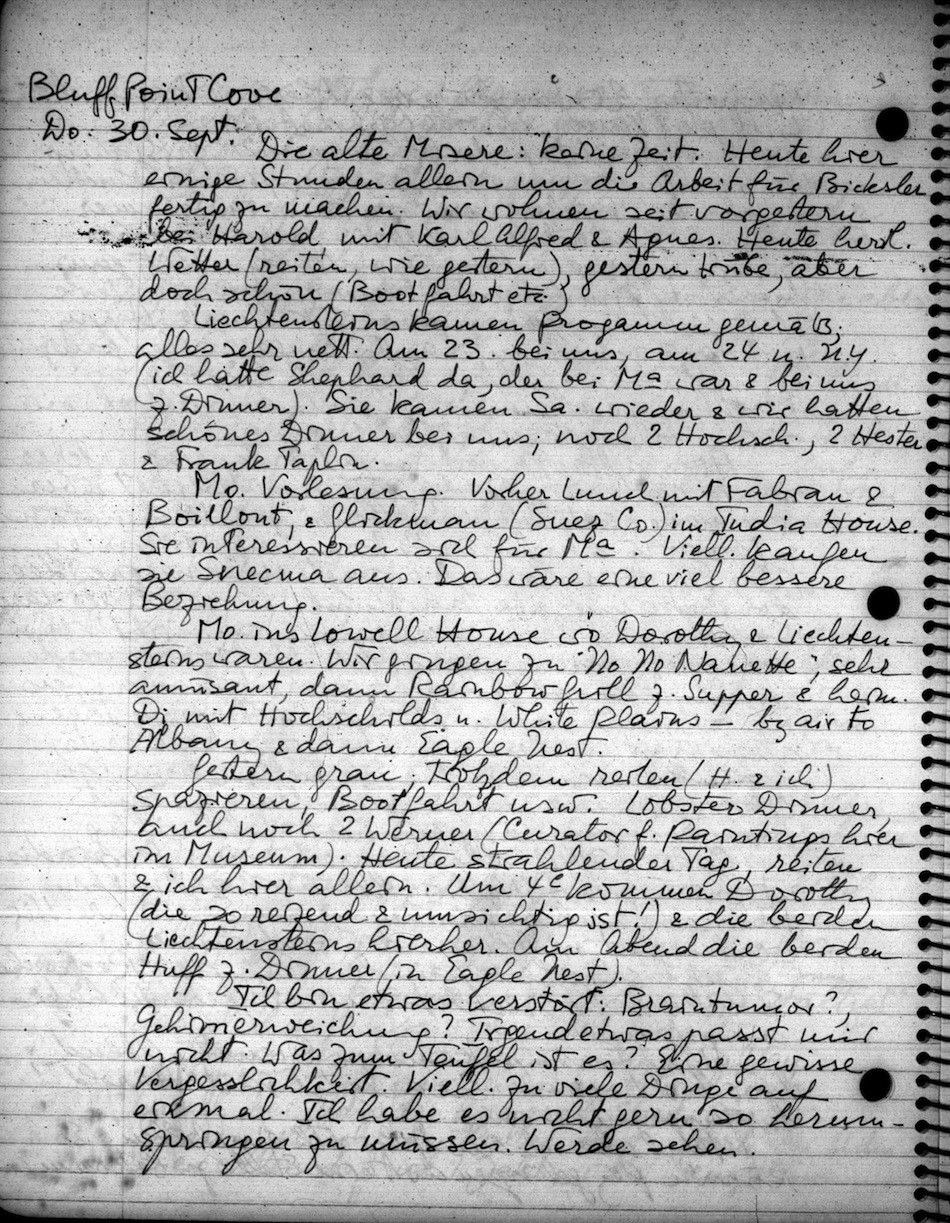 Bluff Point Cove
Do. 30. Sept.
Die alte Misere: keine Zeit. Heute hier
einige Stunden allein um die Arbeit für Bicksler
fertig zu machen. Wir wohnen seit vorgestern
bei Harold mit Karl Alfred & Agnes. Heute herrl.
Wetter (reiten, wie gestern), gestern trübe, aber
doch schön (Bootfahrt etc.)
Liechtensteins kamen Progamm gemäß;
alles sehr nett. Am 23. bei uns, am 24 n. N.Y.
(ich hatte Shephard da, der bei Ma war & bei uns
z. Dinner). Sie kamen Sa. wieder & wir hatten
schönes Dinner bei uns; noch 2 Hochsch., 2 Hester
& Frank Taplin.
Mo. Vorlesung. Vorher Lunch mit Fabian &
Boillout, & Glickman (Suez Co.) im India House.
Sie interessieren sich für Ma. Viell. kaufen
sie Snecma aus. Das wäre eine viel bessere
Beziehung.
Mo. ins Lowell House wo Dorothy & Liechten-
steins waren. Wir gingen zu "No No Nanette", sehr
amüsant, dann Rainbow Grill z. Supper & heim.
Di mit Hochschilds n. White Plains – by air to
Albany & dann Eagle Nest.
Gestern grau. Trotzdem reiten (H. & ich)
Spazieren, Bootfahrt usw. Lobster Dinner,
auch noch 2 Werner (Curator f. Paintings hier
im Museum). Heute strahlender Tag, reiten
& ich hier allein. Um 4h kommen Dorothy
(die so reizend & umsichtig ist!) & die beiden
Liechtensteins hierher. Am Abend die beiden
Huff z. Dinner (in Eagle Nest).
Ich bin etwas verstört: Braintumor?,
Gehirnerweichung? Irgend etwas passt mir
nicht. Was zum Teufel ist es? Eine gewisse
Vergesslichkeit. Viell. zu viele Dinge auf
einmal. Ich habe es nicht gern so herum-
springen zu müssen. Werde sehen.